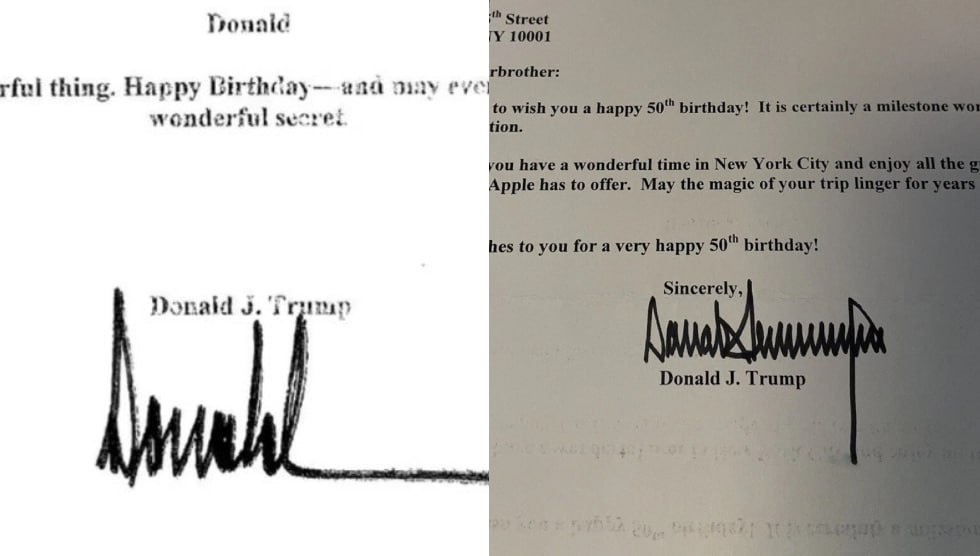 Donald
rful thing. Happy Birthday — and may eve
wonderful secret.
Donald J. Trump
Donald
th Street
Y 10001
rbrother:
to wish you a happy 50th birthday! It is certainly a milestone wor
tion.
you have a wonderful time in New York City and enjoy all the g
Apple has to offer. May the magic of your trip linger for years
hes to you for a very happy 50th birthday!
Sincerely,
Donald Trump
Donald J. Trump